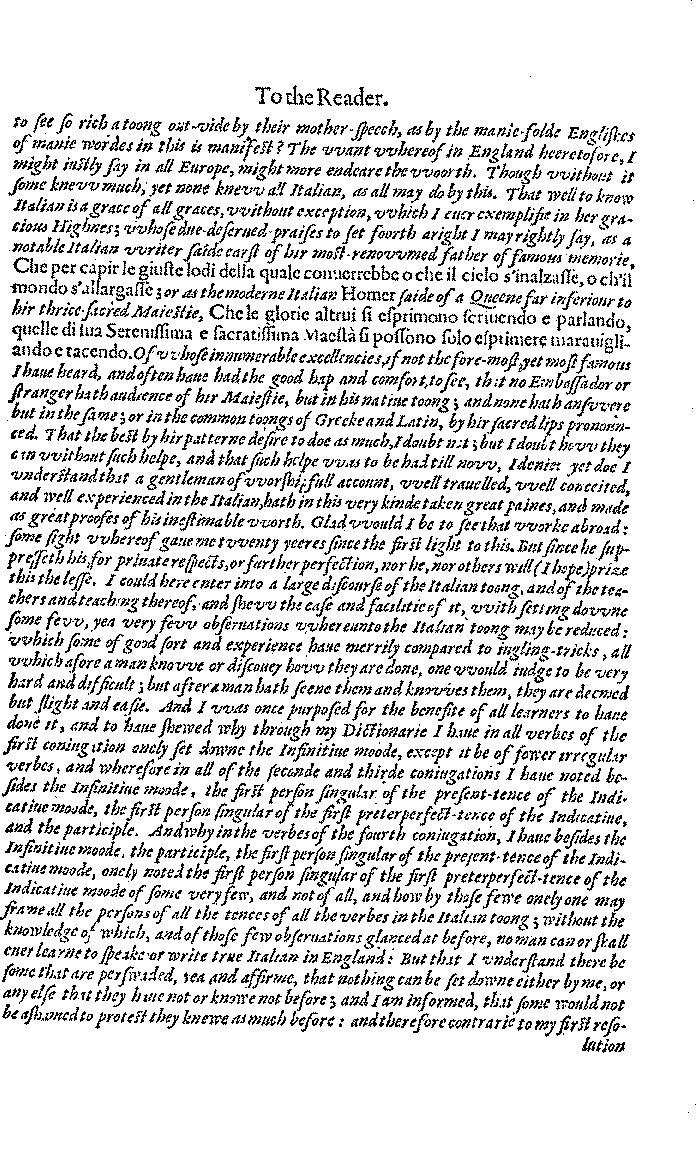 To the Reader.
to ſee ſo rich a toong out-vide by their mother-ſpeech, as by the manie-folde Engliſhes
of manie wordes in this is manifeſt? The vvant vvhereof in England heeretofore, I
might iuſtly ſay in all Europe, might more endeare the vvoorth. Though vvithout it
ſome knevv much, yet none knevv all Italian, as all may do by this. That well to know
Italian is a grace of all graces, vvithout exception, vvhich I euer exemplifie in her gra-
cious Highnes; vvhoſe due-deſerued-praiſes to ſet foorth aright I may rightly ſay, as a
notable Italian vvriter ſaide earſt of hir moſt-renovvmed father of famous memorie,
Che per capir le giuſte lodi della quale conuerrebbe o che il cielo s'inalzaſſe, o ch'il
mondo s'allargaſſe; or as the moderne Italian Homer ſaide of a Queene far inferiour to
hir thrice-ſacred Maieſtie, Che le glorie altrui ſi eſprimono ſcriuendo e parlando,
quelle di ſua Sereniſſima e ſacratiſſima Maeſtà ſi poſſono ſolo eſprimere marauigli-
ando e tacendo. Of vvhoſe innumerable excellencies, if not the fore-moſt, yet moſt famous
I haue heard, and often haue had the good hap and comfort, to ſee, that no Embaſſador or
ſtranger hath audience of hir Maieſtie, but in his natiue toong; and none hath anſvvere
but in the ſame; or in the common toongs of Greeke and Latin, by hir ſacred lips pronoun-
ced. That the beſt by hir patterne deſire to doe as much, I doubt not; but I doubt hovv they
can vvithout ſuch helpe, and that ſuch helpe vvas to be had till novv, I denie: yet doe I
vnderſtand that a gentleman of vvorſhipfull account, vvell trauelled, vvell conceited,
and well experienced in the Italian, hath in this very kinde taken great paines, and made
as great proofes of his ineſtimable vvorth. Glad vvould I be to ſee that vvorke abroad:
ſome ſight vvhereof gaue me tvventy yeeres ſince the firſt light to this. But ſince he ſup-
preſſeth his, for priuate reſpects, or farther perfection, nor he, nor others will (I hope) prize
this the leſſe. I could here enter into a large diſcourſe of the Italian toong, and of the tea-
chers and teaching thereof, and ſhevv the eaſe and facilitie of it, vvith ſetting dovvne
ſome fevv, yea very fevv obſeruations vvhereunto the Italian toong may be reduced:
vvhich ſome of good ſort and experience haue merrily compared to iugling-tricks, all
vvhich afore a man knovve or diſcouer hovv they are done, one vvould iudge to be very
hard and difficult; but after a man hath ſeene them and knovves them, they are deemed
but ſlight and eaſie. And I vvas once purpoſed for the benefite of all learners to haue
done it, and to haue ſhewed why through my Dictionarie I haue in all verbes of the
firſt coniugation onely ſet downe the Infinitiue moode, except it be of fower irregular
verbes, and wherefore in all of the ſeconde and thirde coniugations I haue noted be-
ſides the Infinitiue moode, the firſt perſon ſingular of the preſent-tence of the Indi-
catiue moode, the firſt perſon ſingular of the firſt preterperfect-tence of the Indicatiue,
and the participle. And why in the verbes of the fourth coniugation, I haue beſides the
Infinitiue moode, the participle, the firſt perſon ſingular of the preſent-tence of the Indi-
catiue moode, onely noted the firſt perſon ſingular of the firſt preterperfect-tence of the
Indicatiue moode of ſome very few, and not of all, and how by thoſe fewe onely one may
frame all the perſons of all the tences of all the verbes in the Italian toong; without the
knowledge of which, and of thoſe few obſeruations glanced at before, no man can or ſhall
euer learne to ſpeake or write true Italian in England: But that I vnderſtand there be
ſome that are perſwaded, yea and affirme, that nothing can be ſet downe either by me, or
any elſe that they haue not or knowe not before; and I am informed, that ſome would not
be aſhamed to proteſt they knewe as much before: and therefore contrarie to my firſt reſo-
lution